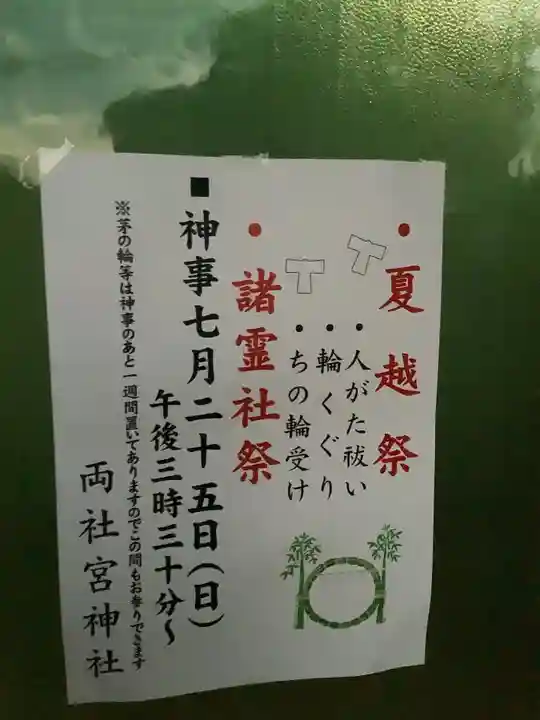 ・夏越祭
・人がた祓い
・輪くぐり
・ちの輪受け
・諸霊社祭
■神事七月二十五日(日)
午後三時三十分～
※茅の輪等は神事のあと一週間置いてありますのでこの間もお参りできます
両社宮神社